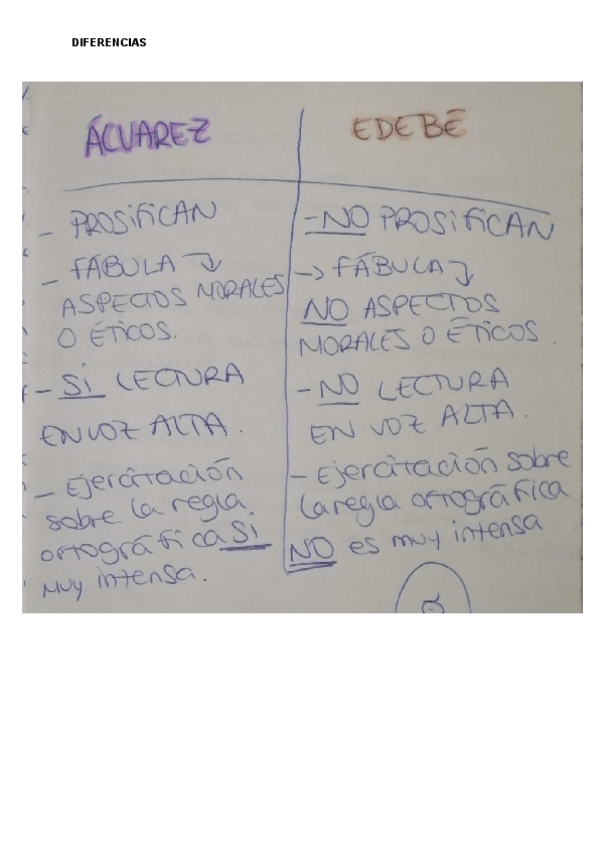 DIFERENCIAS
ÁLVAREZ
EDEBÉ
- PROSIFICAN
- FÁBULA
ASPECTOS MORALES
O ÉTICOS.
- SI LECTURA
EN VOZ ALTA.
- Ejercitación
sobre la regla
ortográfica SI
MUY intensa.
- NO PROSIFICAN
-> FÁBULA
NO ASPECTOS
MORALES O ÉTICOS.
- NO LECTURA
EN VOZ ALTA.
- Ejercitación sobre
la regla ortográfica
NO es muy intensa